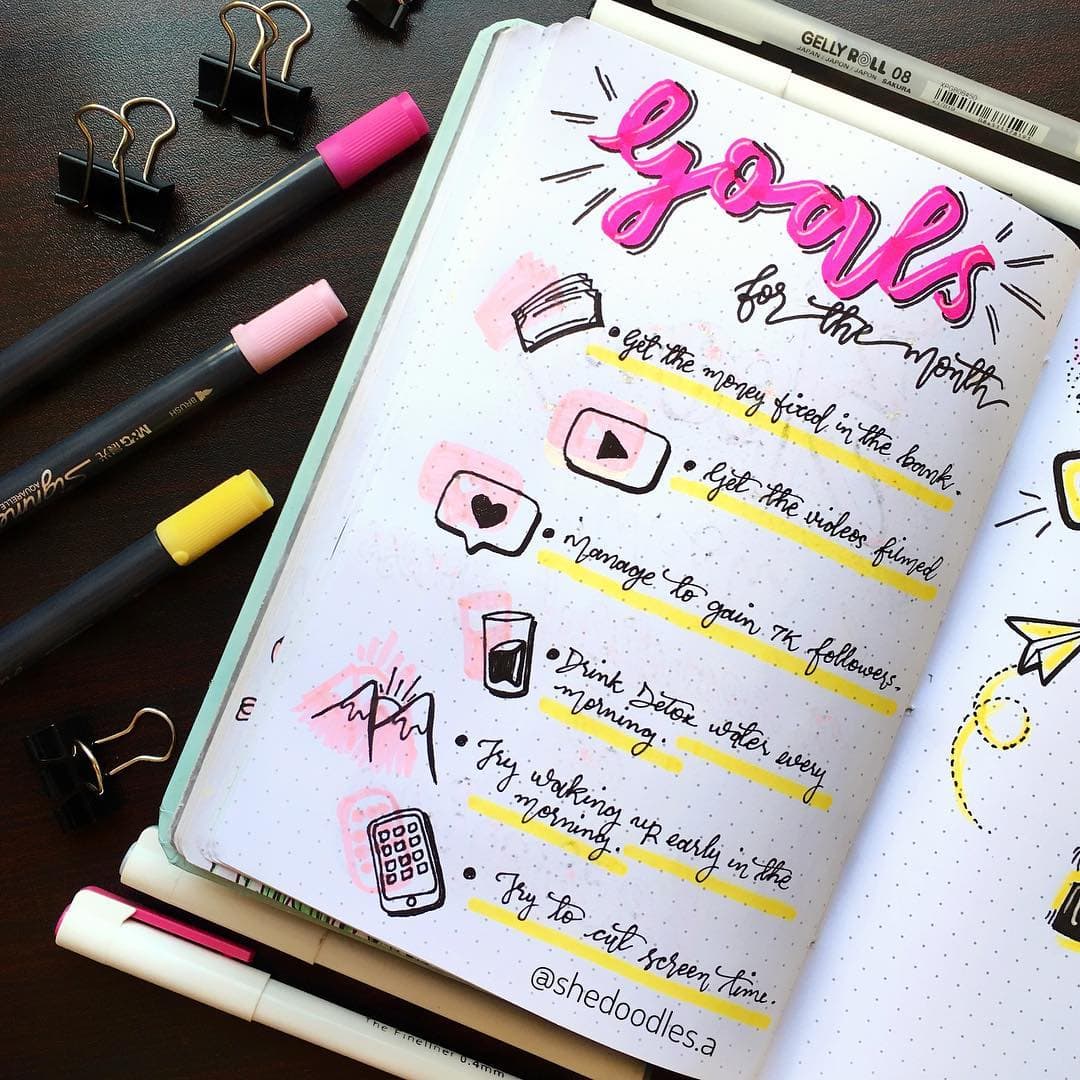 GELLY ROLL 08
JAPAN / JAPON / JAPÓN SAKURA
Goals
for the month
• Get the money fixed in the bank.
• Get the videos filmed
• Manage to gain 7K followers.
• Drink Detox water every
morning.
• Try waking up early in the
morning.
• Try to cut screen time.
@shedoodles.a
BRUSH
M&G
Signme
AQUARELLE
The Fineliner 0.4mm